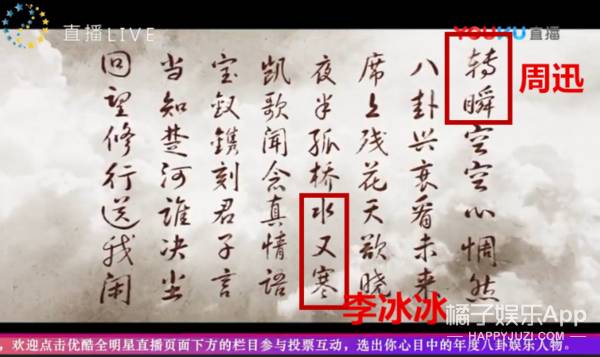 直播LIVE
YOUKU直播
转瞬空空心惆然
周迅
八卦兴衰看未来
席上残花天欲晓
夜半孤桥水又寒
李冰冰
凯歌闻念真情语
宝钗镌刻君子言
当知楚河谁决
回望修行送我闲
橘子娱乐App
HAPPYJUZI.COM
，欢迎点击优酷全明星直播页面下方的栏目参与投票互动，选出你心目中的年度八卦娱乐人物。